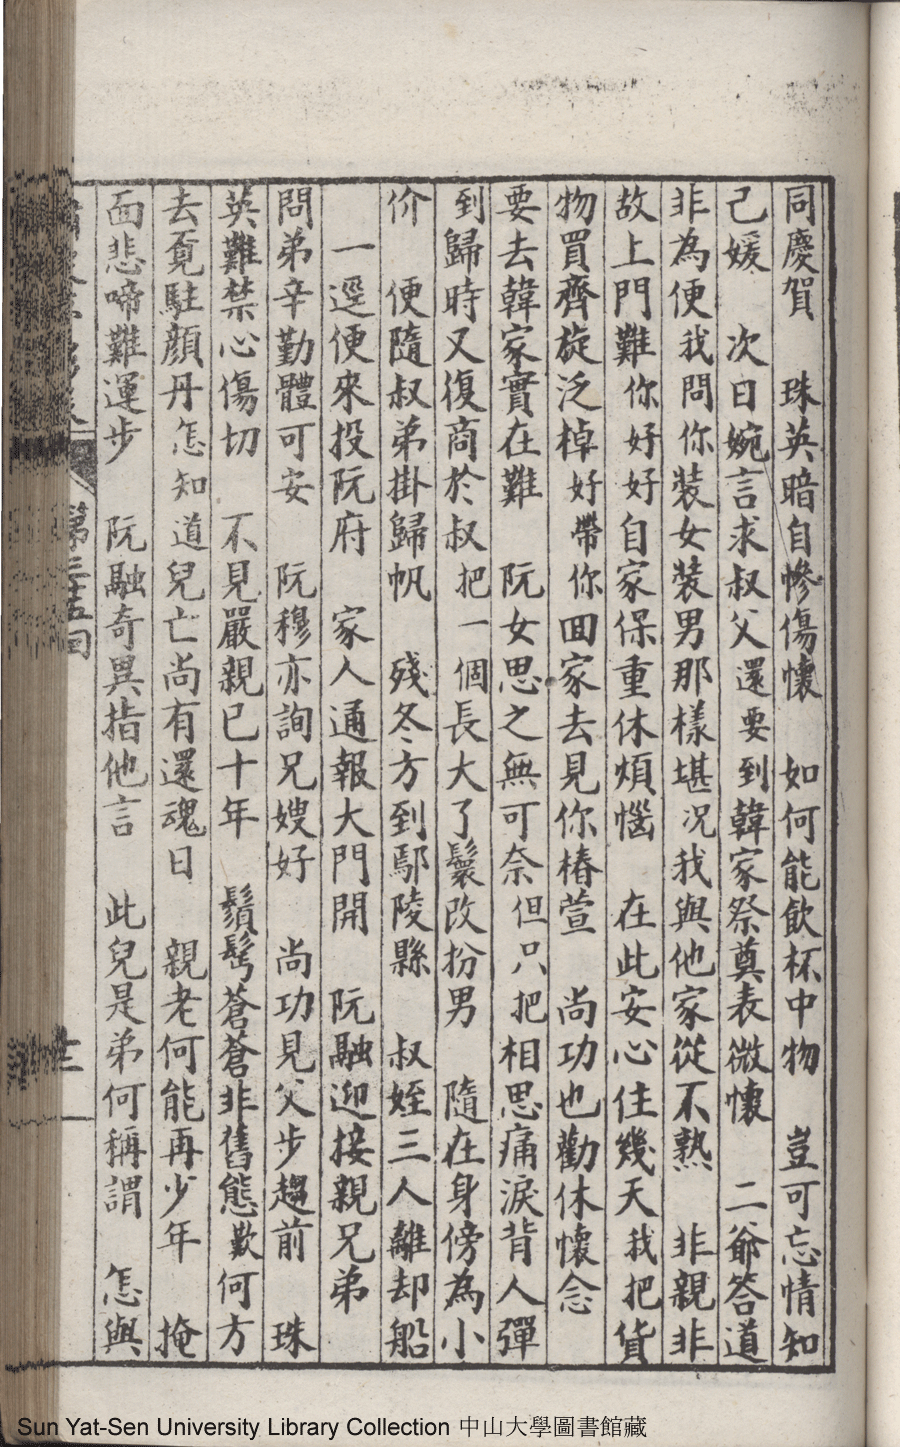 同慶賀　珠英暗自慘傷懷　如何能飲杯中物　豈可忘情知
己媛　次日婉言求叔父還要到韓家祭奠表微懷　二爺答道
非為便我問你裝女裝男那樣堪況我與他家從不熟　非親非
故上門難你好好自家保重休煩惱　在此安心住幾天我把貨
物買齊旋泛棹好帶你回家去見你椿萱　尚功也勸休懷念
要去韓家實在難　阮女思之無可奈但只把相思痛淚背人彈
到歸時又復商於叔把一個長大了鬟改扮男　隨在身傍為小
价　便隨叔弟掛歸帆　殘冬方到鄢陵縣　叔姪三人離却船
一逕便來投阮府　家人通報大門開　阮融迎接親兄弟
問弟辛勤體可安　阮穆亦詢兄嫂好　尚功見父步趨前　珠
英難禁心傷切　不見嚴親已十年　鬚髩蒼蒼非舊態歎何方
去覔駐顏丹怎知道兒亡尚有還魂日　親老何能再少年　掩
面悲啼難運步　阮融奇異指他言　此兒是弟何稱謂　怎與
第三十五回
Sun Yat-Sen University Library Collection 中山大學圖書館藏